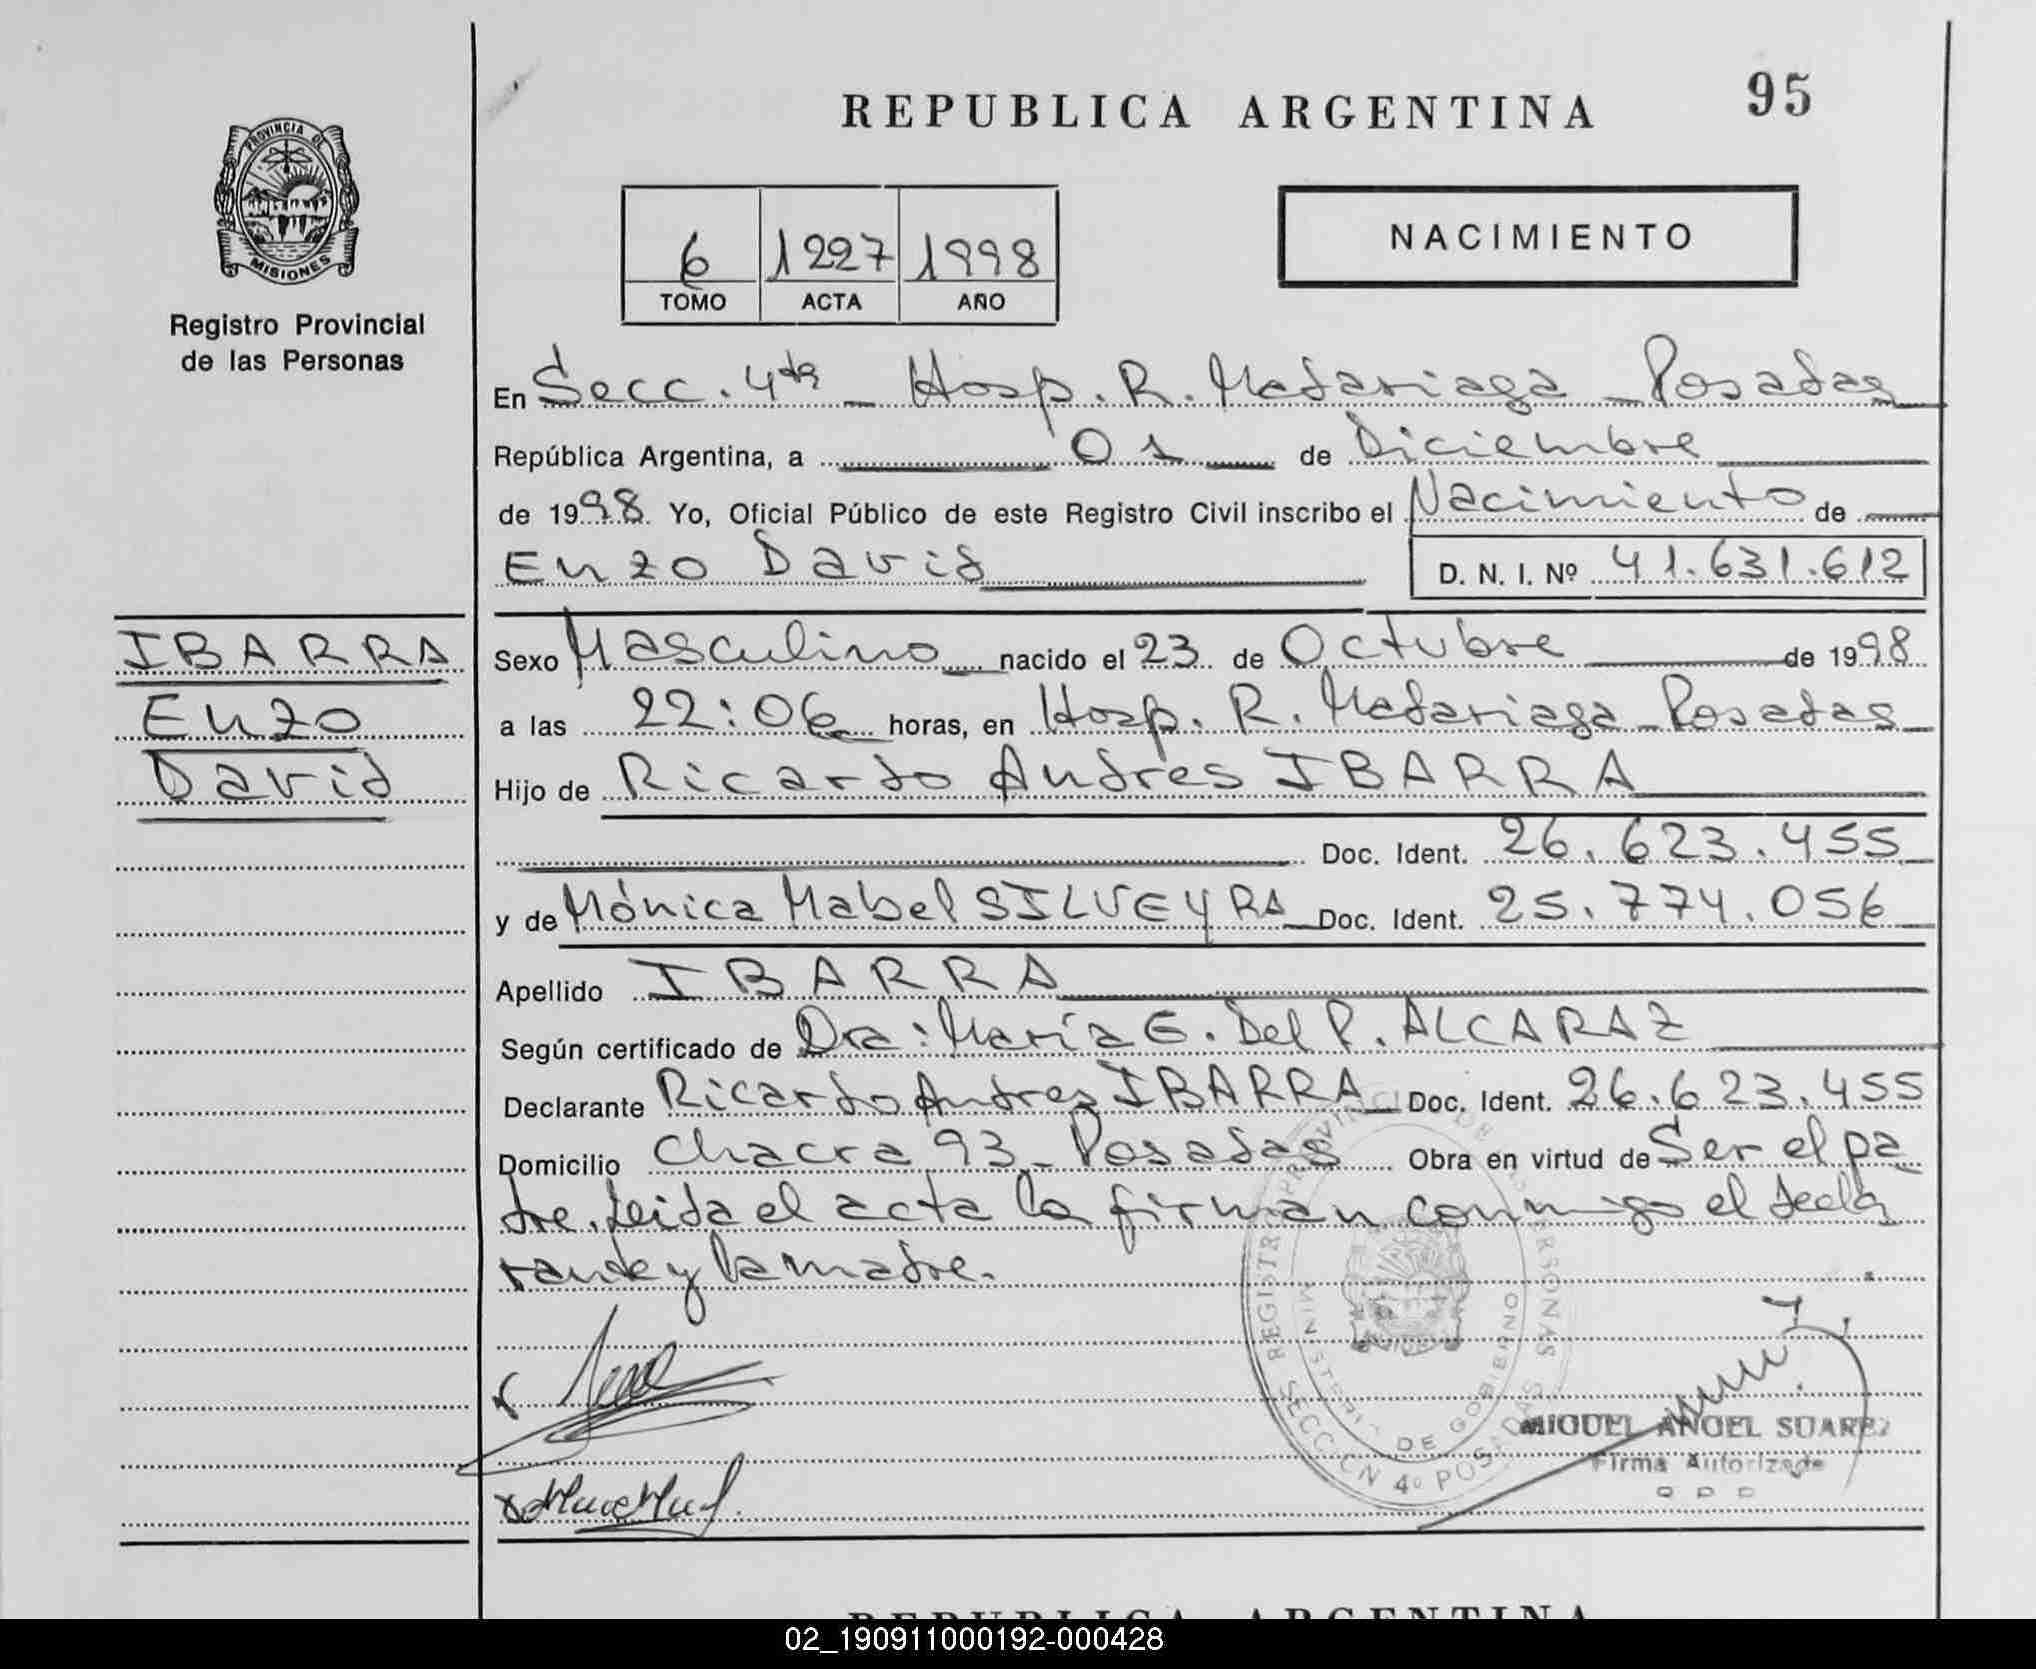 REPUBLICA ARGENTINA 95
PROVINCIA DE
MISIONES
Registro Provincial
de las Personas
6 1227 1998
TOMO ACTA AÑO
NACIMIENTO
En Secc. 4ta - Hosp. R. Madariaga - Posadas
República Argentina, a 01 de Diciembre
de 1998. Yo, Oficial Público de este Registro Civil inscribo el Nacimiento de
Enzo David D. N. I. Nº 41.631.612
IBARRA
Enzo
David
Sexo Masculino nacido el 23 de Octubre de 1998
a las 22:06 horas, en Hosp. R. Madariaga - Posadas
Hijo de Ricardo Andres IBARRA
Doc. Ident. 26.623.455
y de Mónica Mabel SILVEYRA Doc. Ident. 25.774.056
Apellido IBARRA
Según certificado de Dra: María E. Del P. ALCARAZ
Declarante Ricardo Andres IBARRA Doc. Ident. 26.623.455
Domicilio Chacra 93 - Posadas Obra en virtud de Ser el pa
dre. Leida el acta la firman conmigo el decla
rante y la madre.
REGISTRO PROVINCIAL DE LAS PERSONAS
MINISTERIO DE GOBIERNO
SECCION 4º POSADAS
MIGUEL ANGEL SUAREZ
Firma Autorizada
REPUBLICA ARGENTINA
02_190911000192-000428